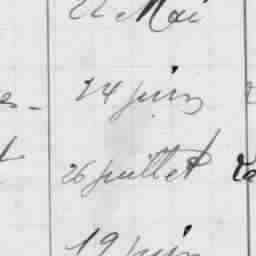 22 Mai
14 juin
26 juillet
19 juin